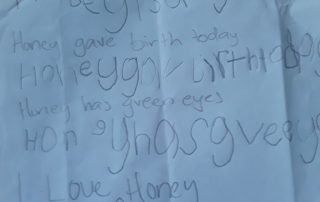 Honey gave birth today
Honeygav birthtoday
Honey has green eyes
Hon ghasgveey
I Love Honey